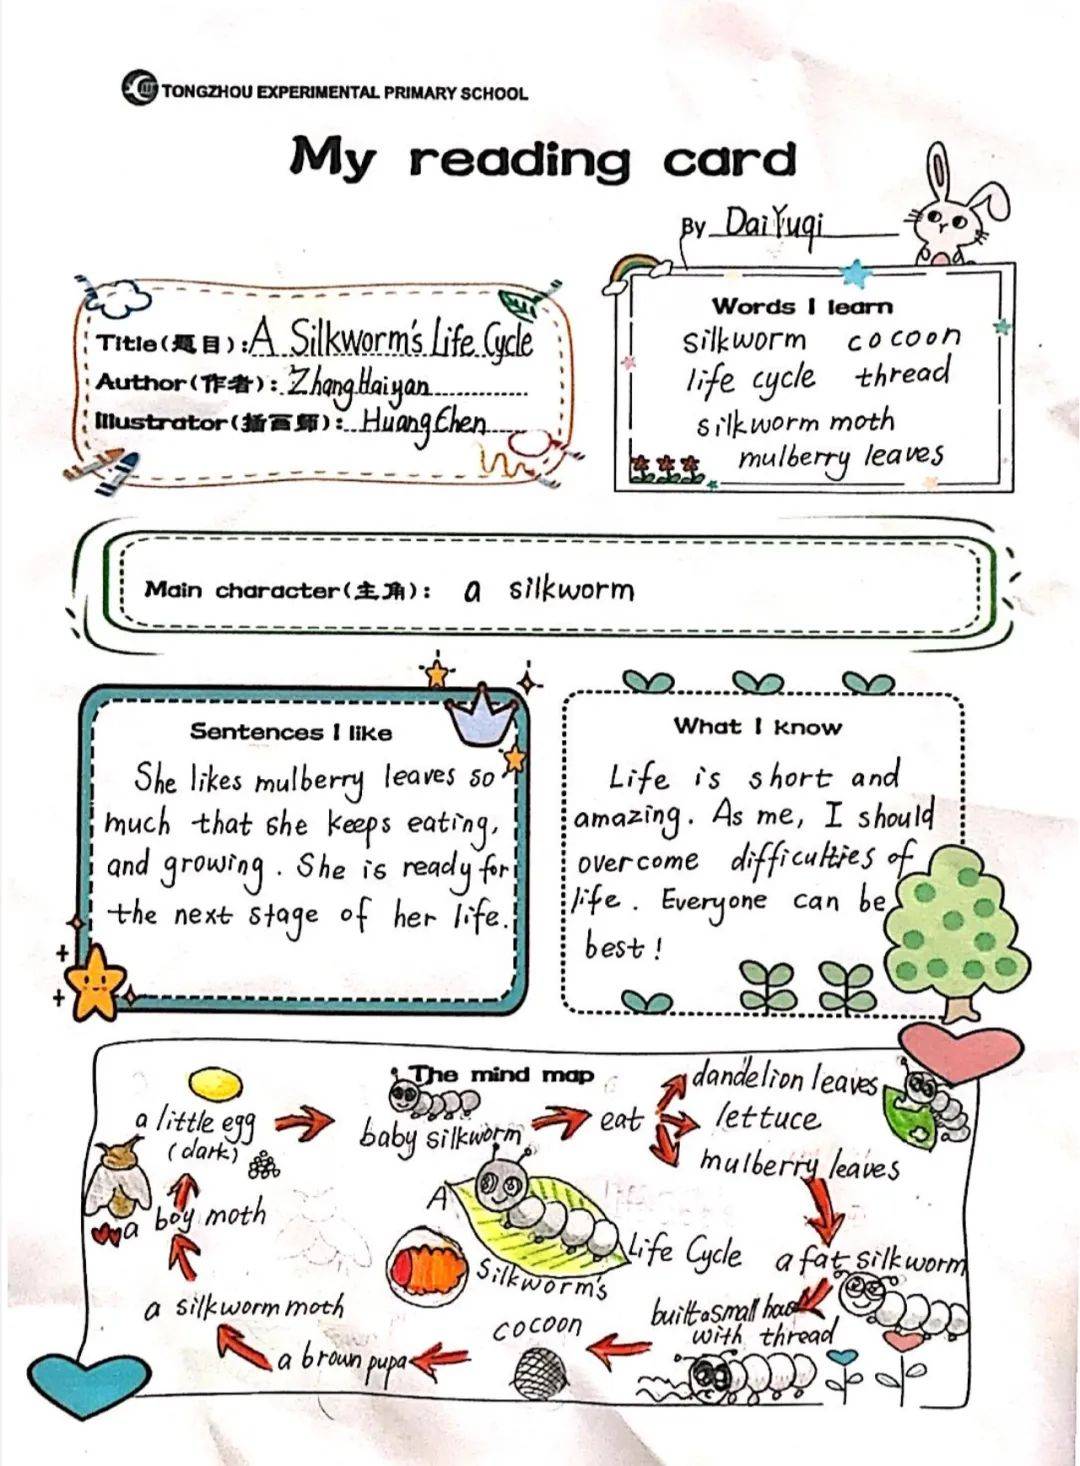 TONGZHOU EXPERIMENTAL PRIMARY SCHOOL
My reading card
By Dai Yuqi
Title(题目): A Silkworm's Life Cycle
Author(作者): Zhang Haiyan
Illustrator(插画师): Huang Chen
Words I learn
silkworm cocoon
life cycle thread
silkworm moth
mulberry leaves
Main character(主角): a silkworm
Sentences I like
She likes mulberry leaves so
much that she keeps eating,
and growing. She is ready for
the next stage of her life.
What I know
Life is short and
amazing. As me, I should
overcome difficulties of
life. Everyone can be
best!
The mind map
a little egg
(dark)
baby silkworm
eat
dandelion leaves
lettuce
mulberry leaves
a fat silkworm
built a small house
with thread
cocoon
a brown pupa
a silkworm moth
a boy moth
A
Silkworm's
Life Cycle